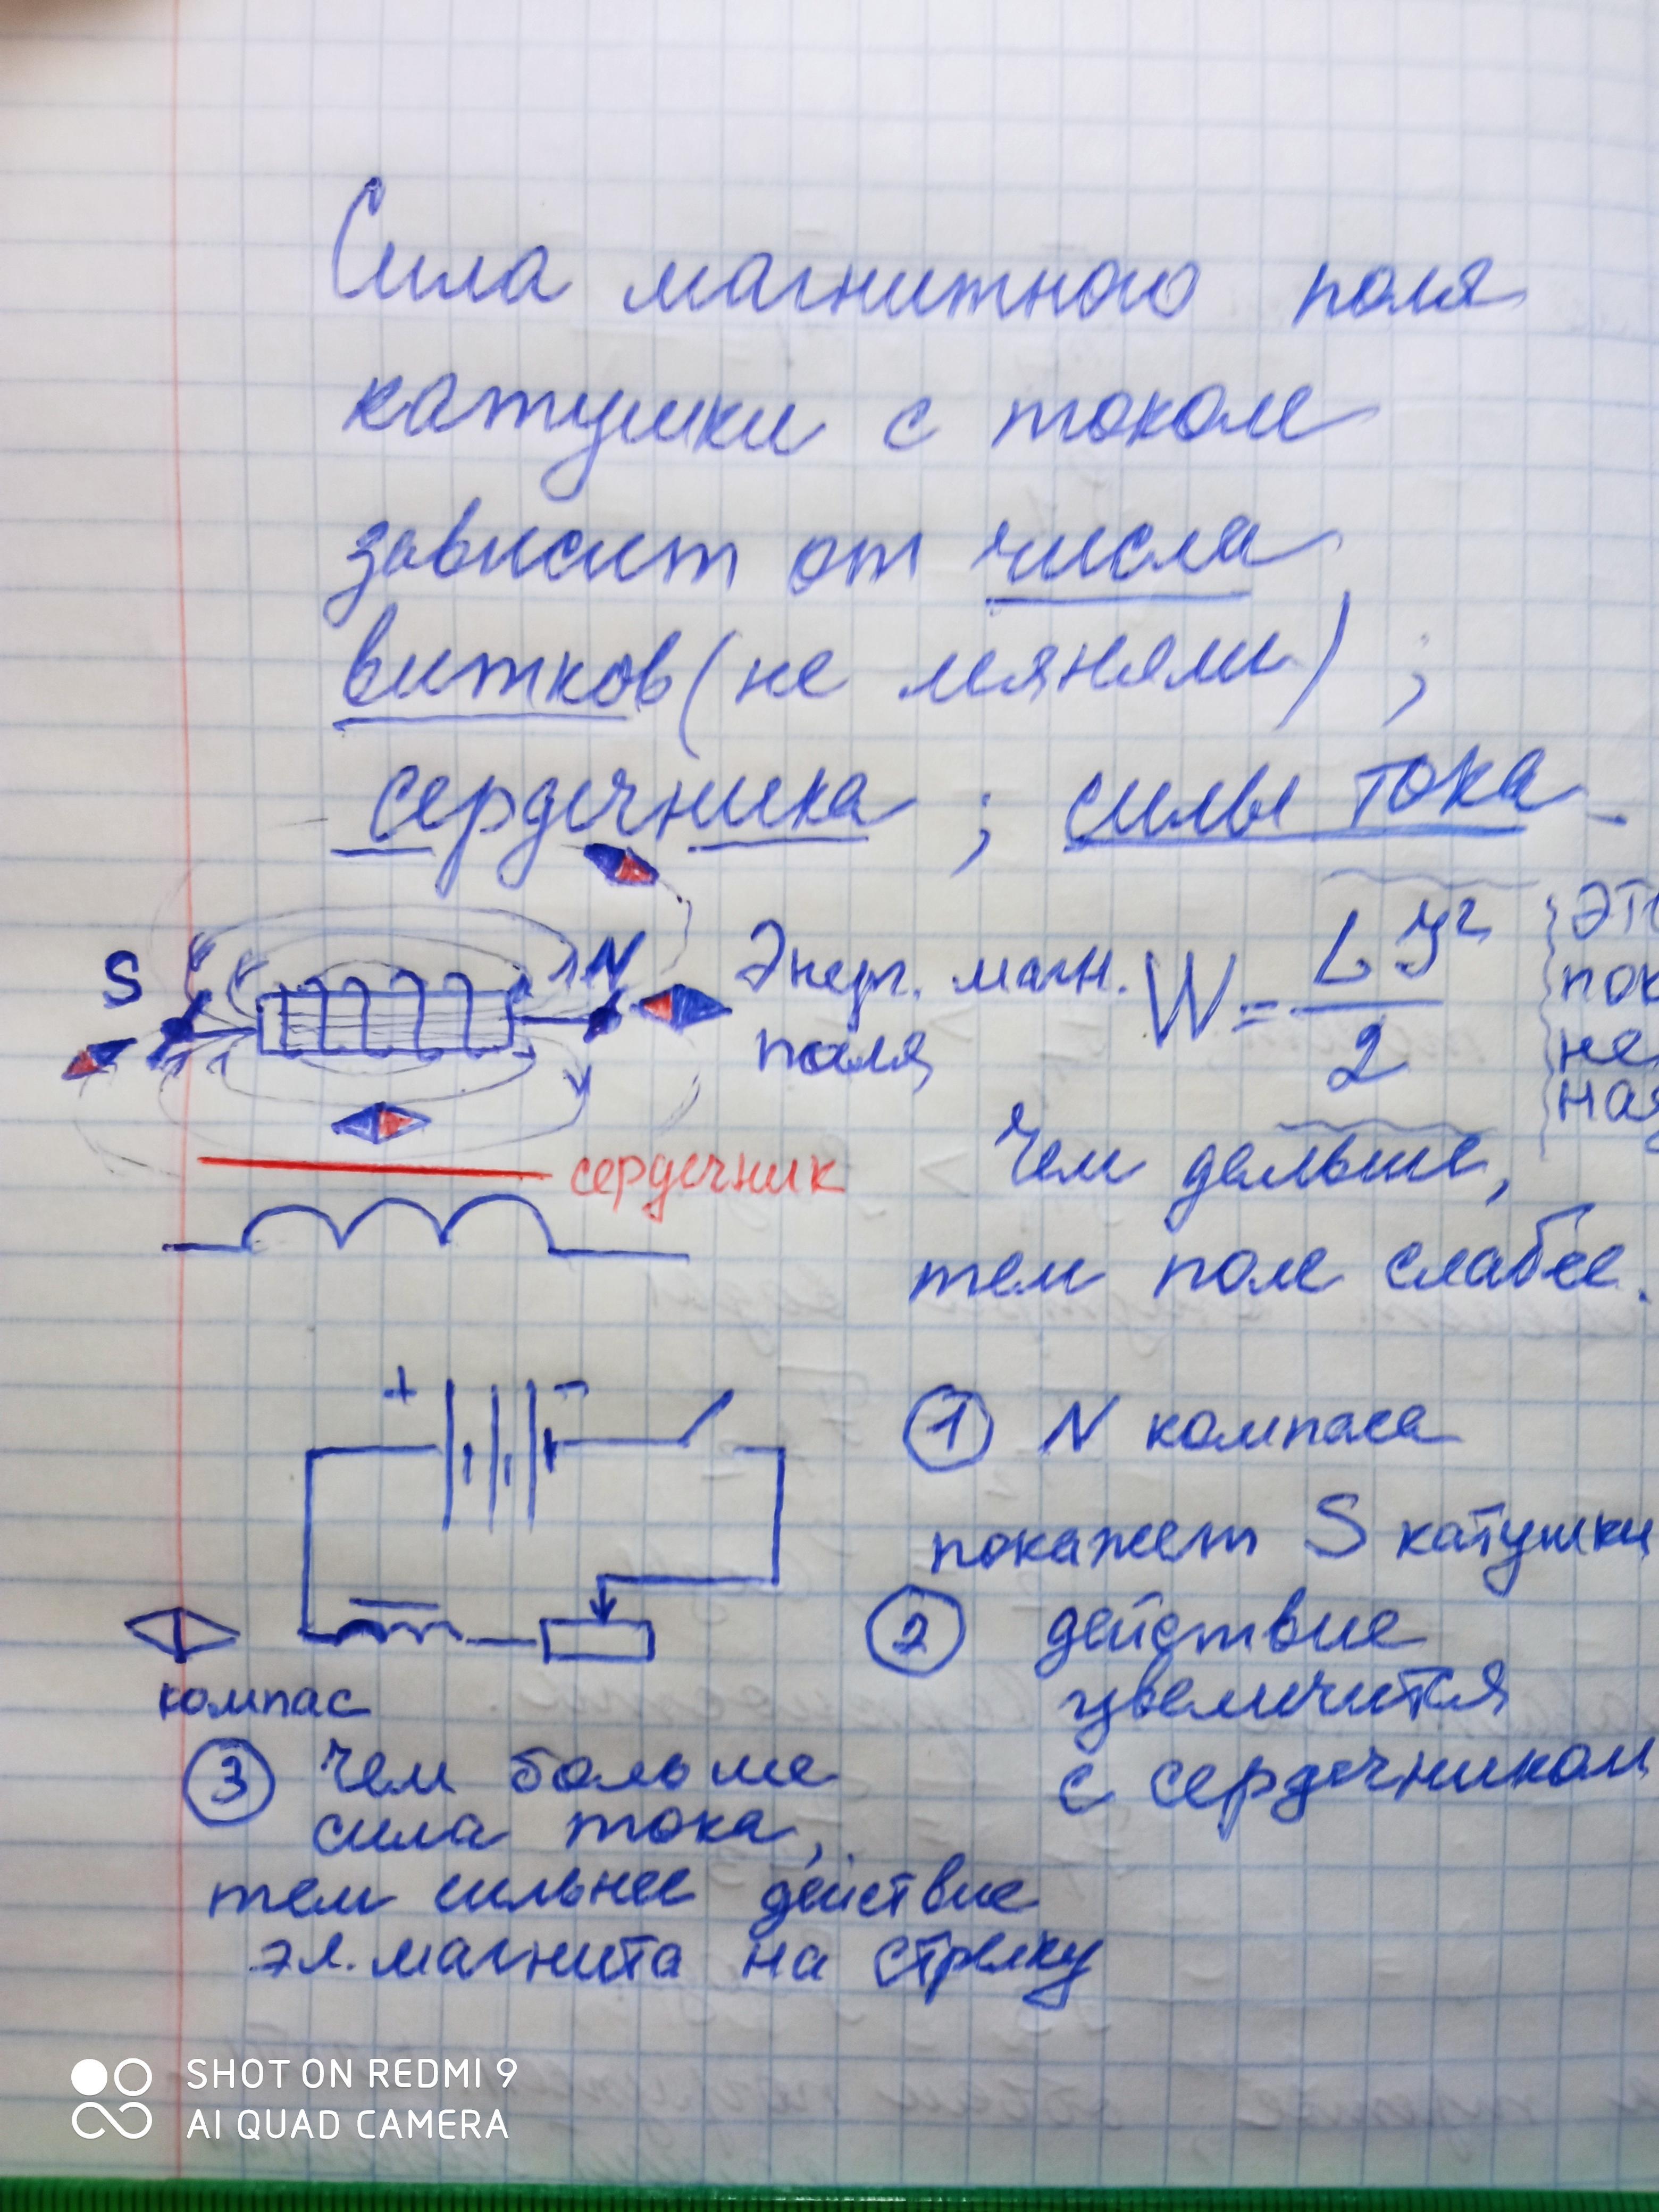 Сила магнитного поля
катушки с током
зависит от числа
витков (не меняли) ;
сердечника ; силы тока.
S
N
Энерг. магн.
поля
W = LI²/2
Чем дальше,
тем поле слабее.
сердечник
+ -
компас
① N компаса
покажет S катушки
② действие
увеличится
с сердечником
③ Чем больше
сила тока,
тем сильнее действие
эл. магнита на стрелку
SHOT ON REDMI 9
AI QUAD CAMERA